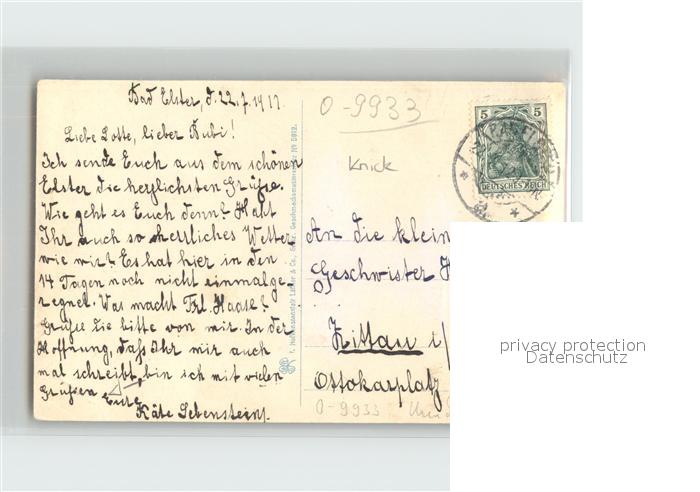 Bad Elster, d. 22.7.1911
Liebe Lotte, lieber Bubi!
Ich sende Euch aus dem schönen
Elster die herzlichsten Grüße.
Wie geht es Euch denn? Habt
Ihr auch so herrliches Wetter
wie wir? Es hat hier in den
14 Tagen noch nicht einmal ge-
regnet. Was macht Frl. Haase?
Grüße sie bitte von mir. In der
Hoffnung, daß Ihr mir auch
mal schreibt, bin ich mit vielen
Grüßen Eure
Käte
0-9933
Knick
5 5
DEUTSCHES REICH
An die klein
Geschwister H
Zittau i/
Ottokarplatz
0-9933
privacy protection
Datenschutz